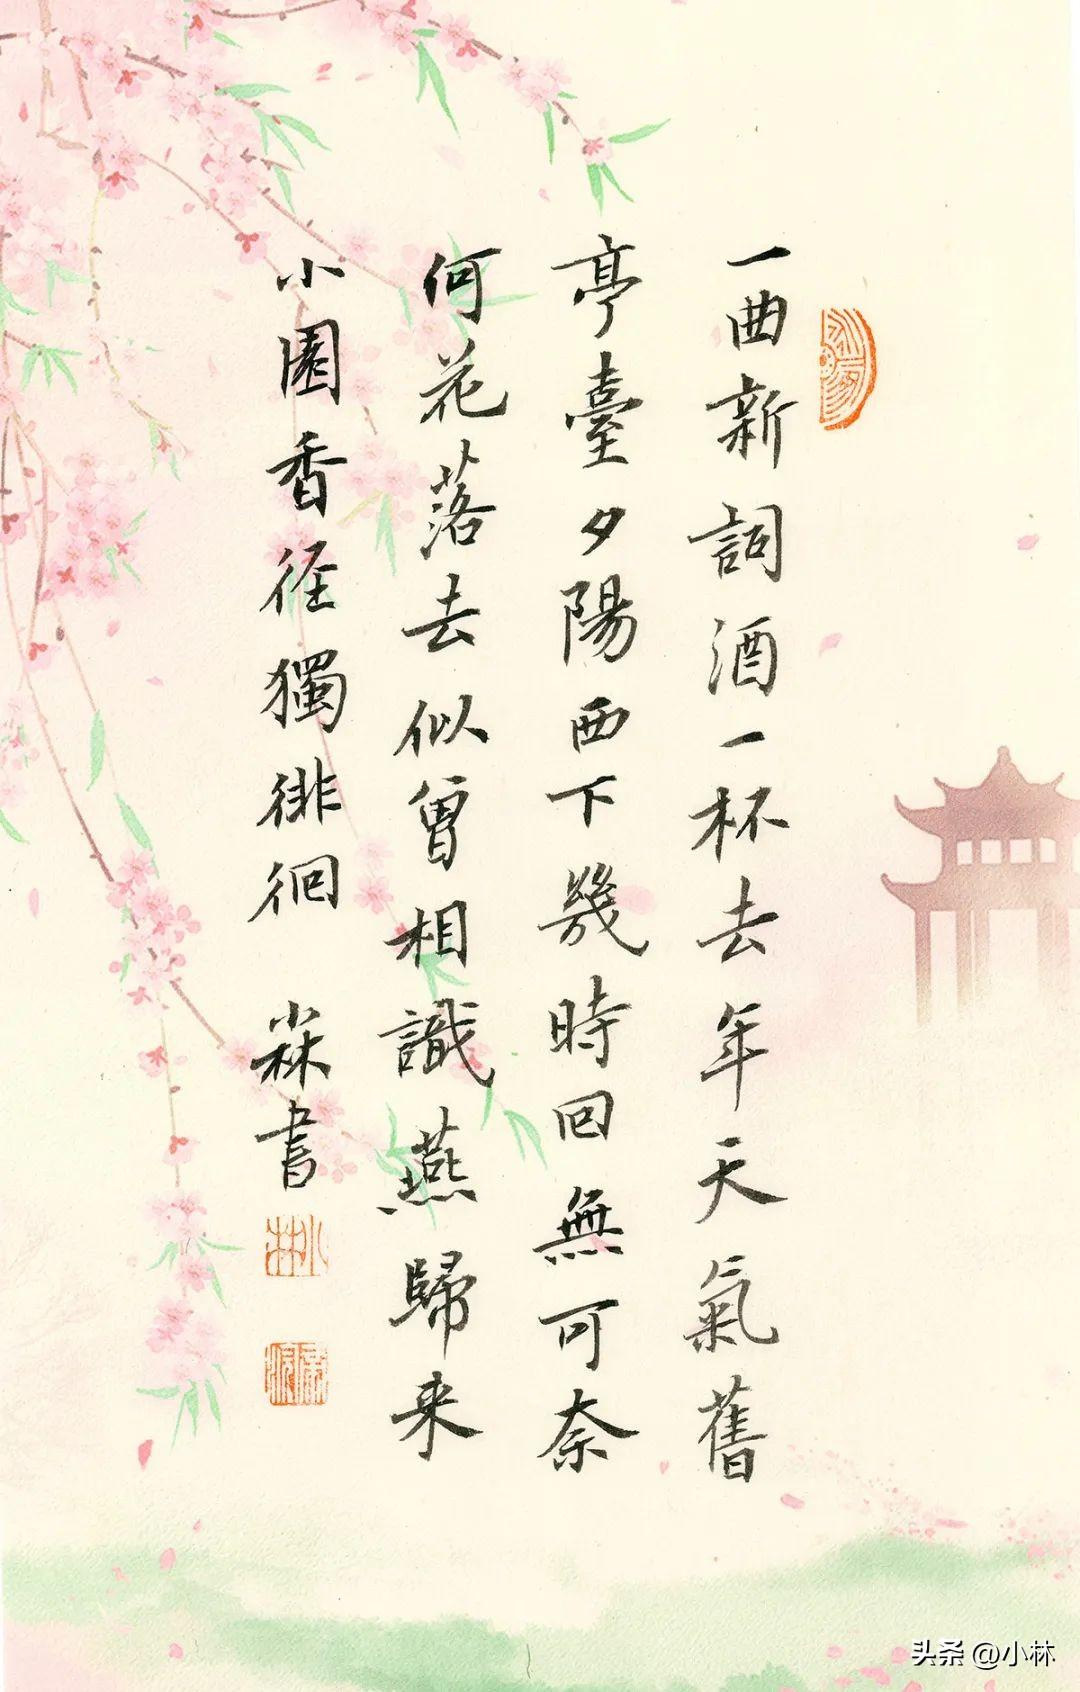 一曲新詞酒一杯去年天氣舊
亭臺夕陽西下幾時回無可奈
何花落去似曾相識燕歸来
小園香径獨徘徊 小林書
小林
头条 @小林